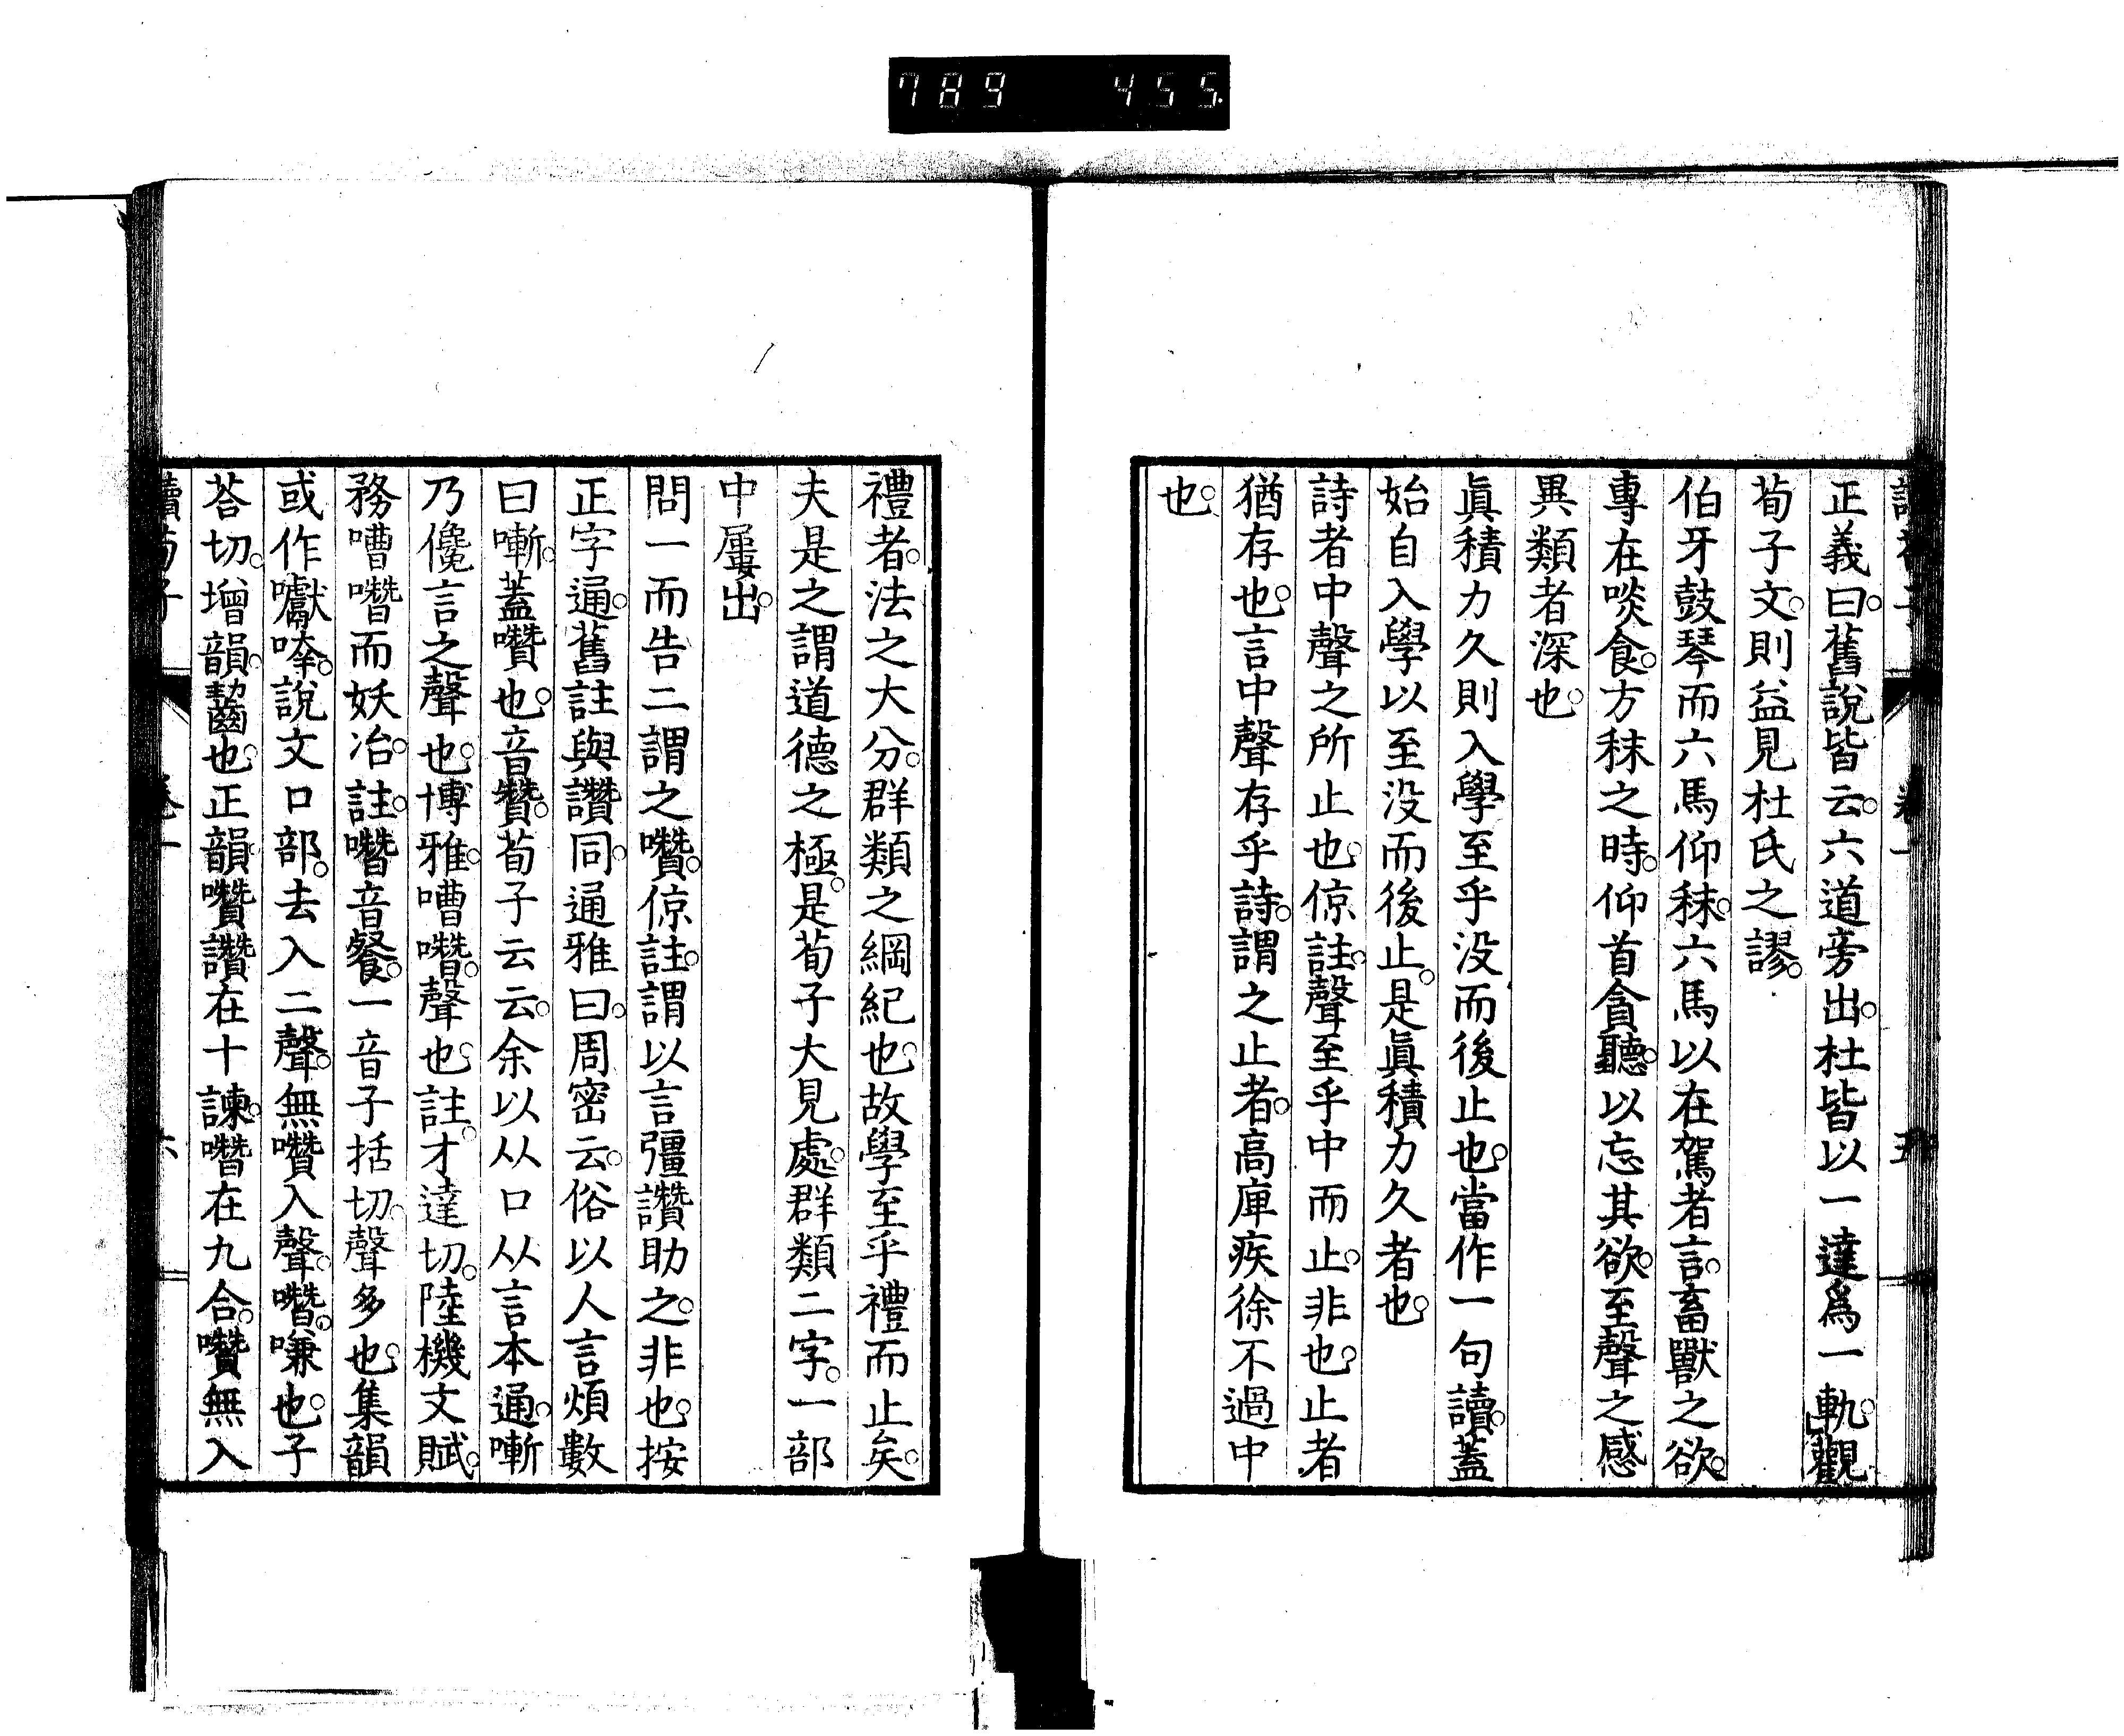 789 455.
正義曰。舊說皆云。六道旁出。杜皆以一達爲一軌。觀
荀子文。則益見杜氏之謬。
伯牙鼓琴而六馬仰秣。六馬以在駕者言。畜獸之欲。
專在啖食。方秣之時。仰首貪聽。以忘其欲。至聲之感
異類者深也。
眞積力久則入學至乎没而後止也。當作一句讀。蓋
始自入學以至没而後止。是眞積力久者也。
詩者中聲之所止也。倞註。聲至乎中而止。非也。止者
猶存也。言中聲存乎詩。謂之止者。高庳疾徐不過中
也。
禮者。法之大分。群類之綱紀也。故學至乎禮而止矣。
夫是之謂道德之極。是荀子大見處。群類二字。一部
中屢出。
問一而告二謂之囋。倞註。謂以言彊讚助之。非也。按
正字通。舊註與讚同。通雅曰。周密云。俗以人言煩數
曰嘶。蓋囋也。音贊。荀子云云。余以从口从言本通。嘶
乃儳言之聲也。博雅。嘈囋。聲也。註才達切。陸機文賦。
務嘈囋而妖冶。註。囋音餐。一音子括切。聲多也。集韻
或作囐㖕。說文口部。去入二聲。無囋入聲。噆。嗛也。子
荅切。增韻。齧也。正韻囋讚在十諫。噆在九合。囋無入
讀荀子 卷一 六